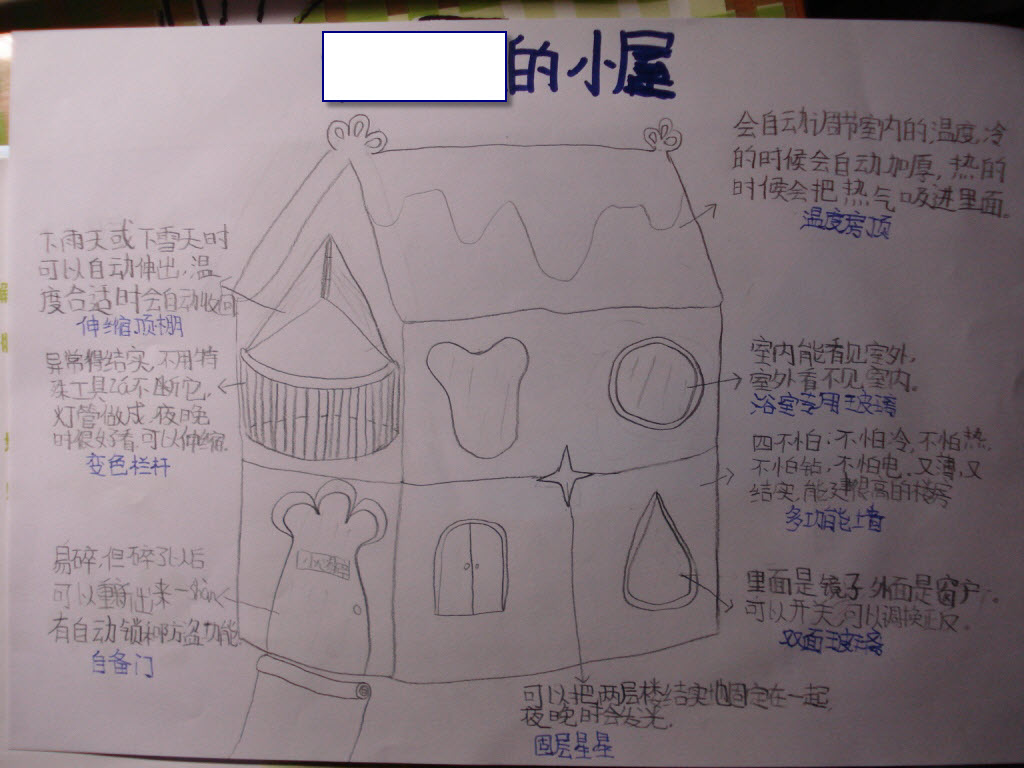 的小屋
会自动调节室内的温度,冷
的时候会自动加厚,热的
时候会把热气吸进里面。
温度房顶
下雨天或下雪天时
可以自动伸出,温
度合适时会自动收回
伸缩顶棚
异常得结实,不用特
殊工具砍不断它,
灯管做成,夜晚
时很好看,可以伸缩.
变色栏杆
室内能看见室外,
室外看不见室内。
浴室专用玻璃
四不怕:不怕冷,不怕热,
不怕钻,不怕电,又薄,又
结实,能建很高的楼房
多功能墙
易碎,但碎了以后
可以重新出来一个
有自动锁和防盗功能
自备门
里面是镜子,外面是窗户.
可以开关,可以调换正反。
双面玻璃
可以把两层楼结实地固定在一起,
夜晚时会发光,
固层星星